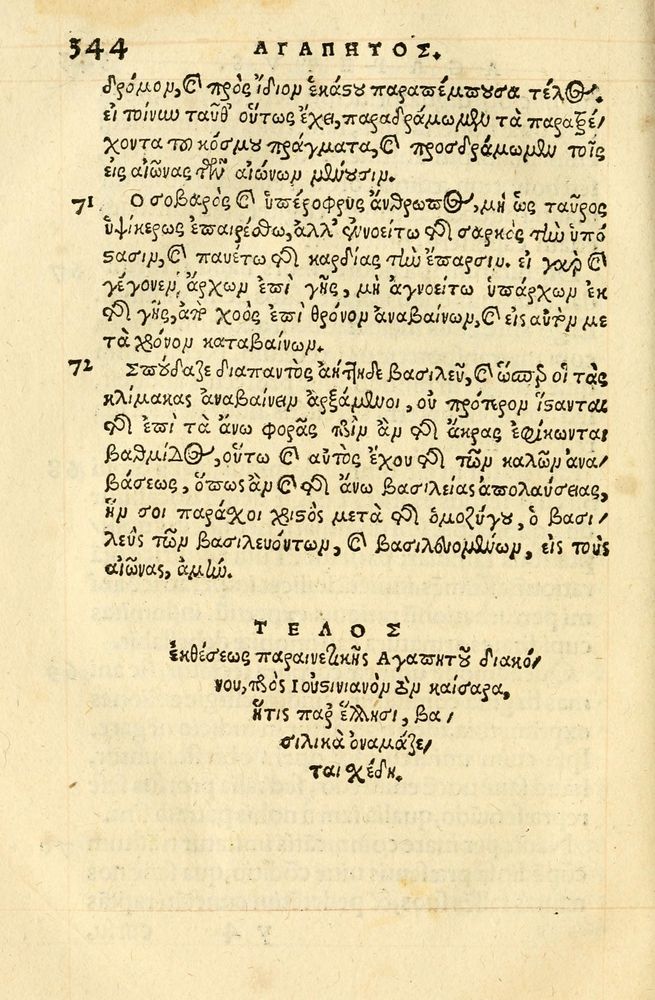 344 ΑΓΑΠΗΤΟΣ.
δρόμον, καὶ πρὸς ἴδιον ἑκάστου παραπέμπουσα τέλος.
εἰ τοίνυν ταῦθ' οὕτως ἔχει, παραδράμωμεν τὰ παρατρέ/
χοντα τοῦ κόσμου πράγματα, καὶ προσδράμωμεν τοῖς
εἰς αἰῶνας τῶν αἰώνων μένουσιν.
71 Ο σοβαρὸς καὶ ὑπέροφρυς ἄνθρωπος, μὴ ὡς ταῦρος
ὑψίκερως ἐπαιρέσθω, ἀλλ' ἐννοείτω τῆς σαρκὸς τὴν ὑπό
στασιν, καὶ παυέτω τῆς καρδίας τὴν ἔπαρσιν. εἰ γὰρ καὶ
γέγονεν ἄρχων ἐπὶ γῆς, μὴ ἀγνοείτω ὑπάρχων ἐκ
τῆς γῆς, ἀπὸ χοὸς ἐπὶ θρόνον ἀναβαίνων, καὶ εἰς αὐτὸν με
τὰ χρόνον καταβαίνων.
72 Σπούδαζε διαπαντὸς ἀήττητε βασιλεῦ, καὶ ὥσπερ οἱ τὰς
κλίμακας ἀναβαίνειν ἀρξάμενοι, οὐ πρότερον ἵστανται
τῆς ἐπὶ τὰ ἄνω φορᾶς πρὶν ἂν τῆς ἄκρας ἐφίκωνται
βαθμίδος, οὕτω καὶ αὐτὸς ἔχου τῆς τῶν καλῶν ἀνα/
βάσεως, ὅπως ἂν καὶ τῆς ἄνω βασιλείας ἀπολαύσειας,
ἥν σοι παράχοι χριστὸς μετὰ τῆς ὁμοζύγου, ὁ βασι/
λεὺς τῶν βασιλευόντων, καὶ βασιλευομένων, εἰς τοὺς
αἰῶνας, ἀμήν.
ΤΕΛΟΣ
ἐκθέσεως παραινετικῆς Αγαπητοῦ διακό/
νου, πρὸς Ιουστινιανὸν τὸν καίσαρα,
ἥτις παρ' ἕλλησι, βα/
σιλικὰ ὀνομάζε/
ται σχέδη.